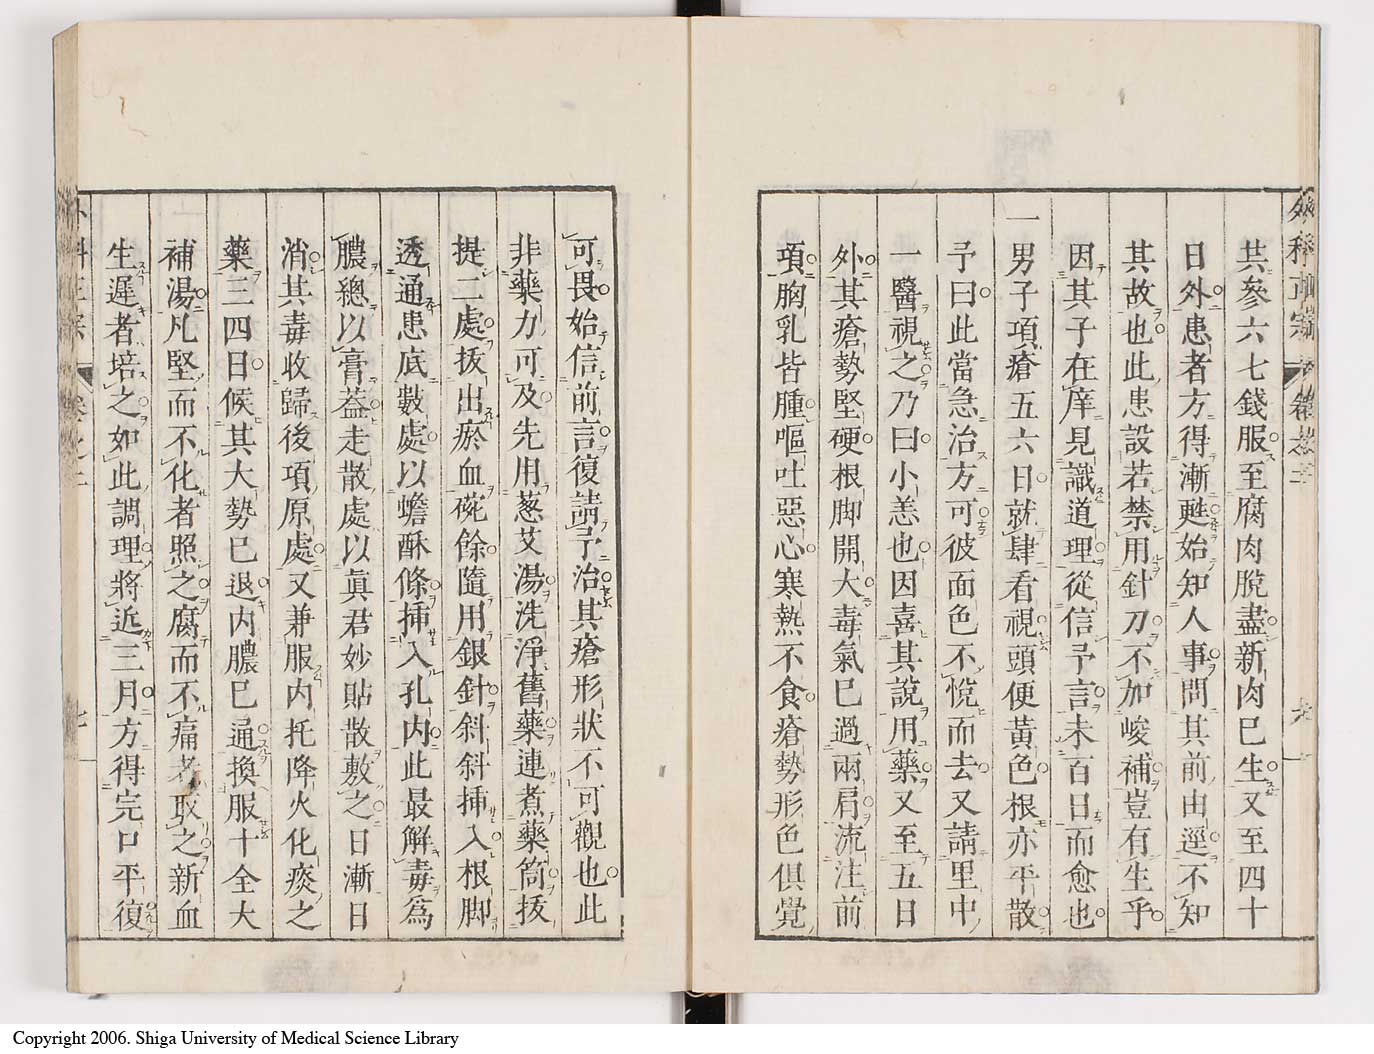 共參六七錢服至腐肉脫盡新肉已生又至四十
日外患者方得漸甦始知人事問其前由逕不知
其故也此患設若禁用針刀不加峻補豈有生乎
因其子在庠見識道理從信予言未百日而愈也
一男子項瘡五六日就肆看視頭便黃色根亦平散
予曰此當急治方可彼面色不悅而去又請里中
一醫視之乃曰小恙也因喜其說用藥又至五日
外其瘡勢堅硬根脚開大毒氣已過兩肩流注前
項胸乳皆腫嘔吐惡心寒熱不食瘡勢形色俱覺
可畏始信前言復請予治其瘡形狀不可觀也此
非藥力可及先用葱艾湯洗淨舊藥連煮藥筒拔
提二處拔出瘀血碗餘隨用銀針斜斜插入根脚
透通患底數處以蟾酥條插入孔內此最解毒為
膿總以膏蓋走散處以眞君妙貼散敷之日漸日
消其毒收歸後項原處又兼服内托降火化痰之
藥三四日候其大勢已退内膿已通換服十全大
補湯凡堅而不化者照之腐而不痛者取之新血
生遲者培之如此調理將近三月方得完口平復
卷之二
Copyright 2006. Shiga University of Medical Science Library